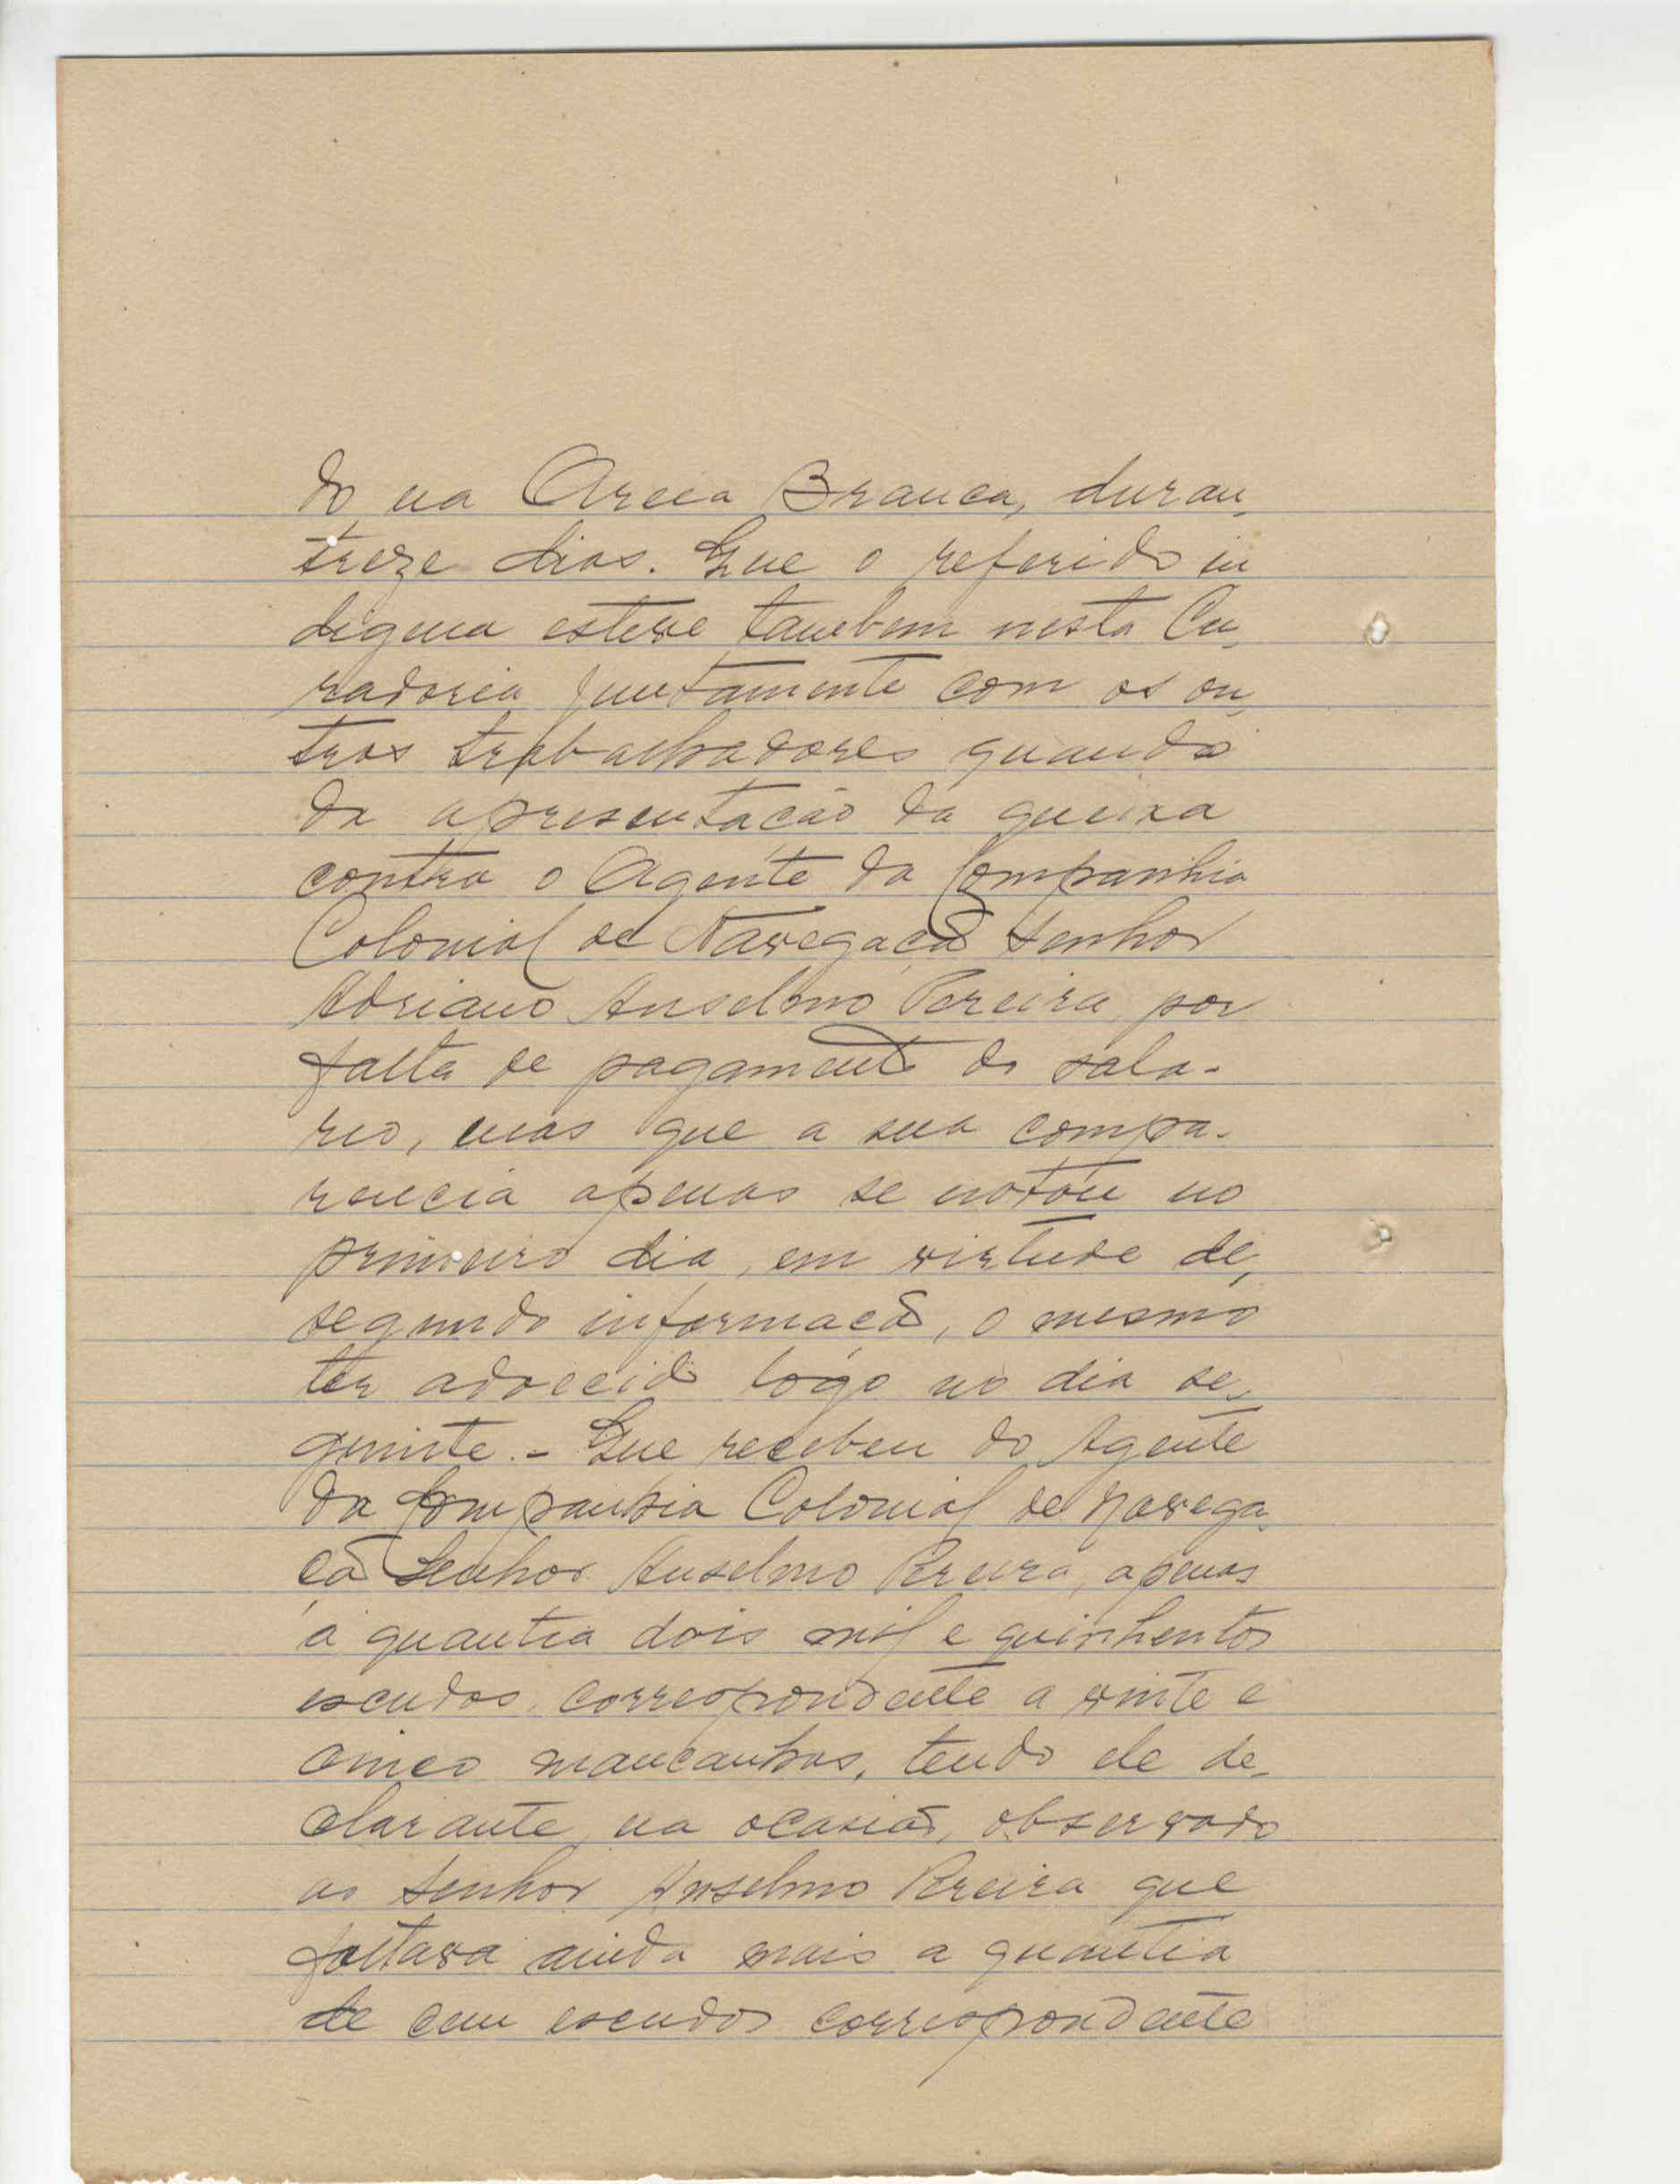 do na Areia Branca, duran-
treze dias. Que o referido in
digena esteve tambem nesta Cu-
radoria juntamente com os ou-
tros trabalhadores quando
da apresentação da queixa
contra o Agente da Companhia
Colonial de Navegação Senhor
Adriano Anselmo Pereira, por
falta de pagamento do sala-
rio, mas que a sua compa-
rencia apenas se notou no
primeiro dia, em virtude de,
segundo informação, o mesmo
ter adoecido logo no dia se-
guinte. - Que recebeu do Agente
da Companhia Colonial de Navega-
ção Senhor Anselmo Pereira, apenas
a quantia dois mil e quinhentos
escudos, correspondente a vinte e
cinco mancanhas, tendo ele de-
clarante, na ocasião, observado
ao Senhor Anselmo Pereira que
faltava ainda mais a quantia
de cem escudos correspondente